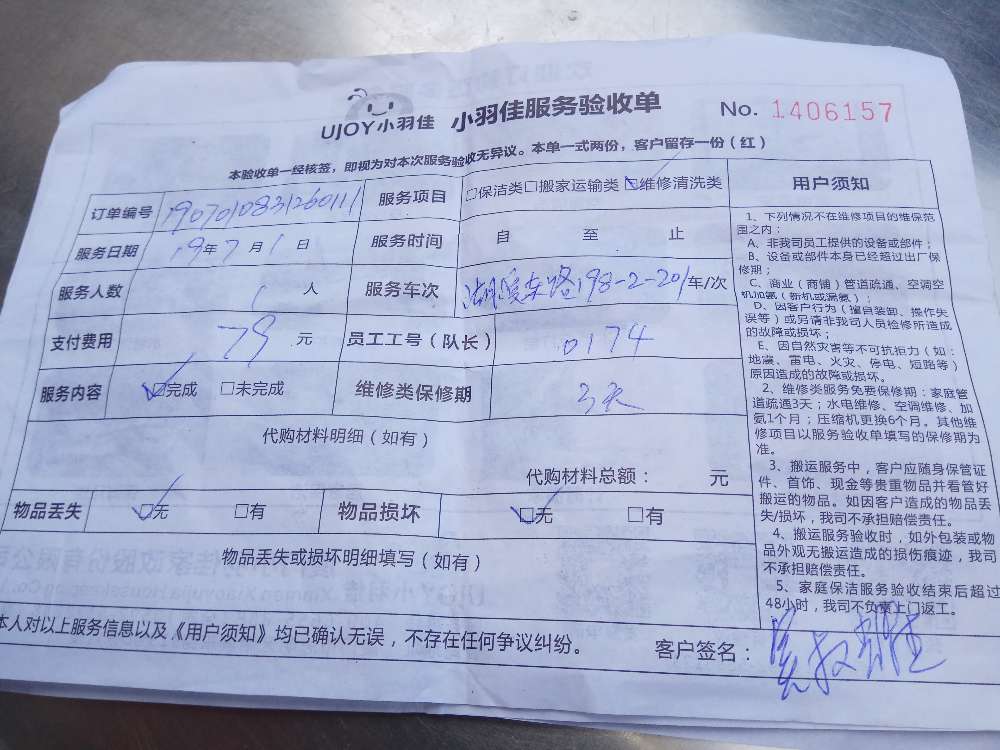 UJOY小羽佳 小羽佳服务验收单 No. 1406157
本验收单一经核签，即视为对本次服务验收无异议。本单一式两份，客户留存一份（红）
订单编号 1907010831260111 服务项目 □保洁类□搬家运输类☑维修清洗类
服务日期 19年7月1日 服务时间 自 至 止
服务人数 1人 服务车次 湖滨东路198-2-201车/次
支付费用 79元 员工工号（队长） 0174
服务内容 ☑完成 □未完成 维修类保修期 3天
代购材料明细（如有）
代购材料总额： 元
物品丢失 ☑无 □有 物品损坏 ☑无 □有
物品丢失或损坏明细填写（如有）
本人对以上服务信息以及《用户须知》均已确认无误，不存在任何争议纠纷。
客户签名：
用户须知
1、下列情况不在维修项目的维保范
围之内：
A、非我司员工提供的设备或部件；
B、设备或部件本身已经超过出厂保
修期；
C、商业（商铺）管道疏通、空调空
机加氨（新机或漏氨）；
D、因客户行为（擅自装卸、操作失
误等）或另请非我司人员检修所造成
的故障或损坏；
E、因自然灾害等不可抗拒力（如：
地震、雷电、火灾、停电、短路等）
原因造成的故障或损坏。
2、维修类服务免费保修期：家庭管
道疏通3天；水电维修、空调维修、加
氨1个月；压缩机更换6个月。其他维
修项目以服务验收单填写的保修期为
准。
3、搬运服务中，客户应随身保管证
件、首饰、现金等贵重物品并看管好
搬运的物品。如因客户造成的物品丢
失/损坏，我司不承担赔偿责任。
4、搬运服务验收时，如外包装或物
品外观无搬运造成的损伤痕迹，我司
不承担赔偿责任。
5、家庭保洁服务验收结束后超过
48小时，我司不负责上门返工。